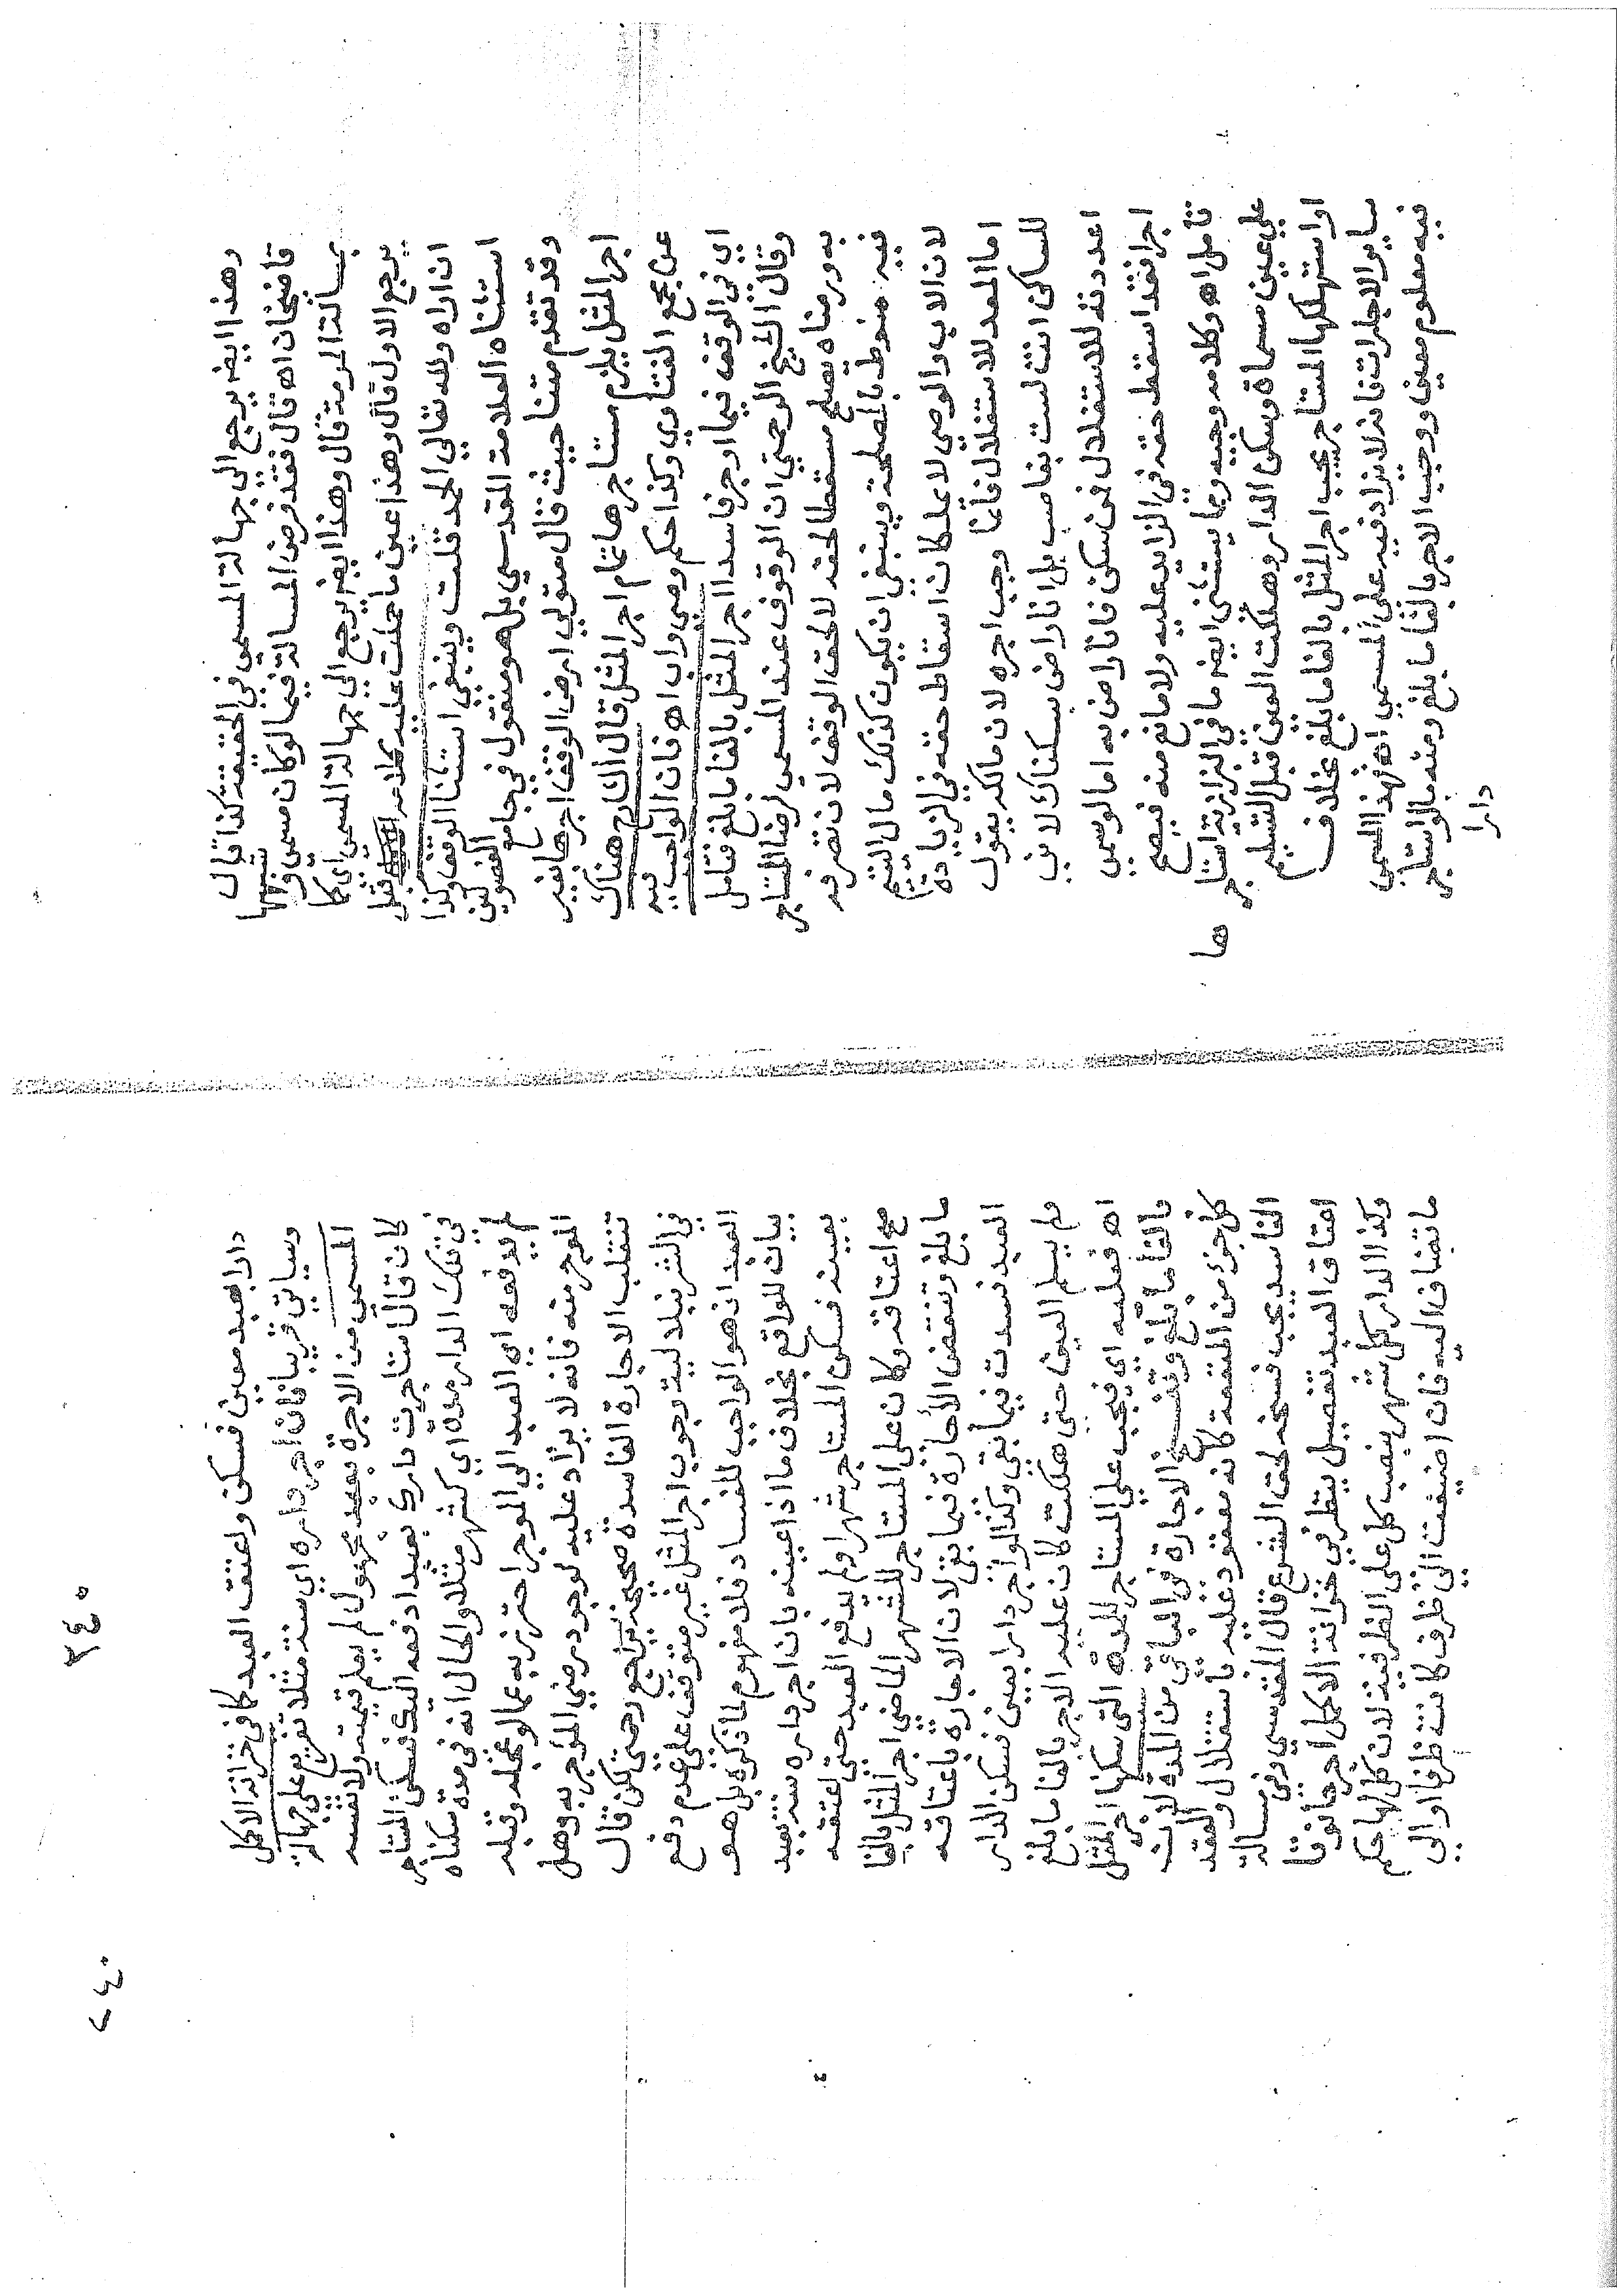 وهذا ايضا يرجع الى جهالة المسمى في الحقيقة كذا قال
قاضيخان اه قال فقد فرض المسالة فيما لوكان مسمى وانها
بمسالة المرمة قال وهذا ايضا يرجع الى جهالة المسمى اي كما
يرجع الاول قال وهذا عين ما حملت عليه كلامه فقل
ان اراه ولله تعالى الحمد قلت وينبغي استثنا الوقف وكذا
استثناه العلامة المقدسي بل هو منقول في جامع الفصولين
وقد تقدم متنا حيث قال متولي ارض الوقف اجرها بغير
اجر المثل يلزم مستاجرها تمام اجر المثل قال الشارح هناك
عن مجمع الفتاوي وكذا حكم وصي واب اه فان الواجب فيه
اي في الوقف فيما اوجر فاسدا اجر المثل بالغا ما بلغ فتامل
وقال الشيخ الرحمتي ان الوقوف عند المسمى لرضا المستاجر
به ورضاه يصلح مسقطا لحقه لا لحق الوقف لان تصرفه
فيه منوط بالمصلحة وينبغي ان يكون كذلك مال اليتيم
لان الاب والوصي لا يملكان اسقاط حقه في الزيادة
اما المعد للاستغلال فانما وجب اجره لان مالكه يقول
للساكن انت لست بغاصب بل انا راض بسكناك لاني
اعددته للاستغلال فمن سكن فانا راض به اما لو سمى
اجرا فقد اسقط حقه في الزايد عليه ولا مانع منه فيصح
تامل اه وكلامه وجيه ومما يستثنى ايضا ما في البزازية استاجر
على عين مسماة وسكن الدار وهلكت العين قبل التسليم
او استهلكها المستاجر يجب اجر المثل بالغا ما بلغ بخلاف
ساير الاجارات فانه لا يزاد فيه على المسمى اه فهذا المسمى
فيه معلوم معين ووجب الاجر بالغا ما بلغ ومثه ما لو استاجر
دارا
دارا بعبد معين فسكن ولعتق العبد كما في خزانة الاكمل
وسياتي قريبا فان اجر داره اي سنة مثلا تفريع على جهالة
المسمى من الاجرة بعبد مجهول لم يعلم قيمته ولا نفسه
كان قال استاجرت دارك بعبد ادفعه اليك فسكن المستاجر
في تلك الدار مدة اي كشهر مثلا والحال انه في مدة سكناه
لم يدفعه اي العبد الى الموجر احترز به عما لو عجله وقبله
الموجر منه فانه لا يزاد عليه لوجود رضي المؤجر به وهل
تنقلب الاجارة الفاسدة صحيحة يراجع رحمتي لكن قال
في الشرنبلالية وجوب اجر المثل غير متوقف على عدم دفع
العبد اذ هو الواجب للفساد فلا مفهوم لما ذكره بل هو
بيان للواقع بخلاف ما اذا عينه بان اجر داره سنة بعبد
بعينه فسكن المستاجر شهرا ولم يدفع العبد حتى اعتقه
صح اعتاقه وكان على المستاجر للشهر الماضي اجر المثل بالغا
ما بلغ وتنتقض الأجارة فيما بقي لان الاجارة باعتاقه
العبد فسدت فيما بقي وكذا لو اجر دارا بعين فسكن الدار
ولم يسلم العين حتى هلكت كان عليه الاجر بالغا ما بلغ
اه فعليه اي فيجب على المستاجر للمدة التي سكنها اجر المثل
بالغا ما بلغ وتفسخ الاجارة في الباقي من المدة لان
كل جزء من المنفعة كانه معقود عليه باستقلال والعقد
الفاسد يجب فسخه لحق الشرع قال المقدسي وفي مسالة
اعتاق العبد تفصيل ينظر في خزانة الاكمل اجر حانوتا
وكذا الدار كل شهر بنصب كل على الظرفية لان كل لها حكم
ما تضاف اليه فان اضيفت الى ظرف كانت ظرفا او الى
٢٤٠
٢٤٠